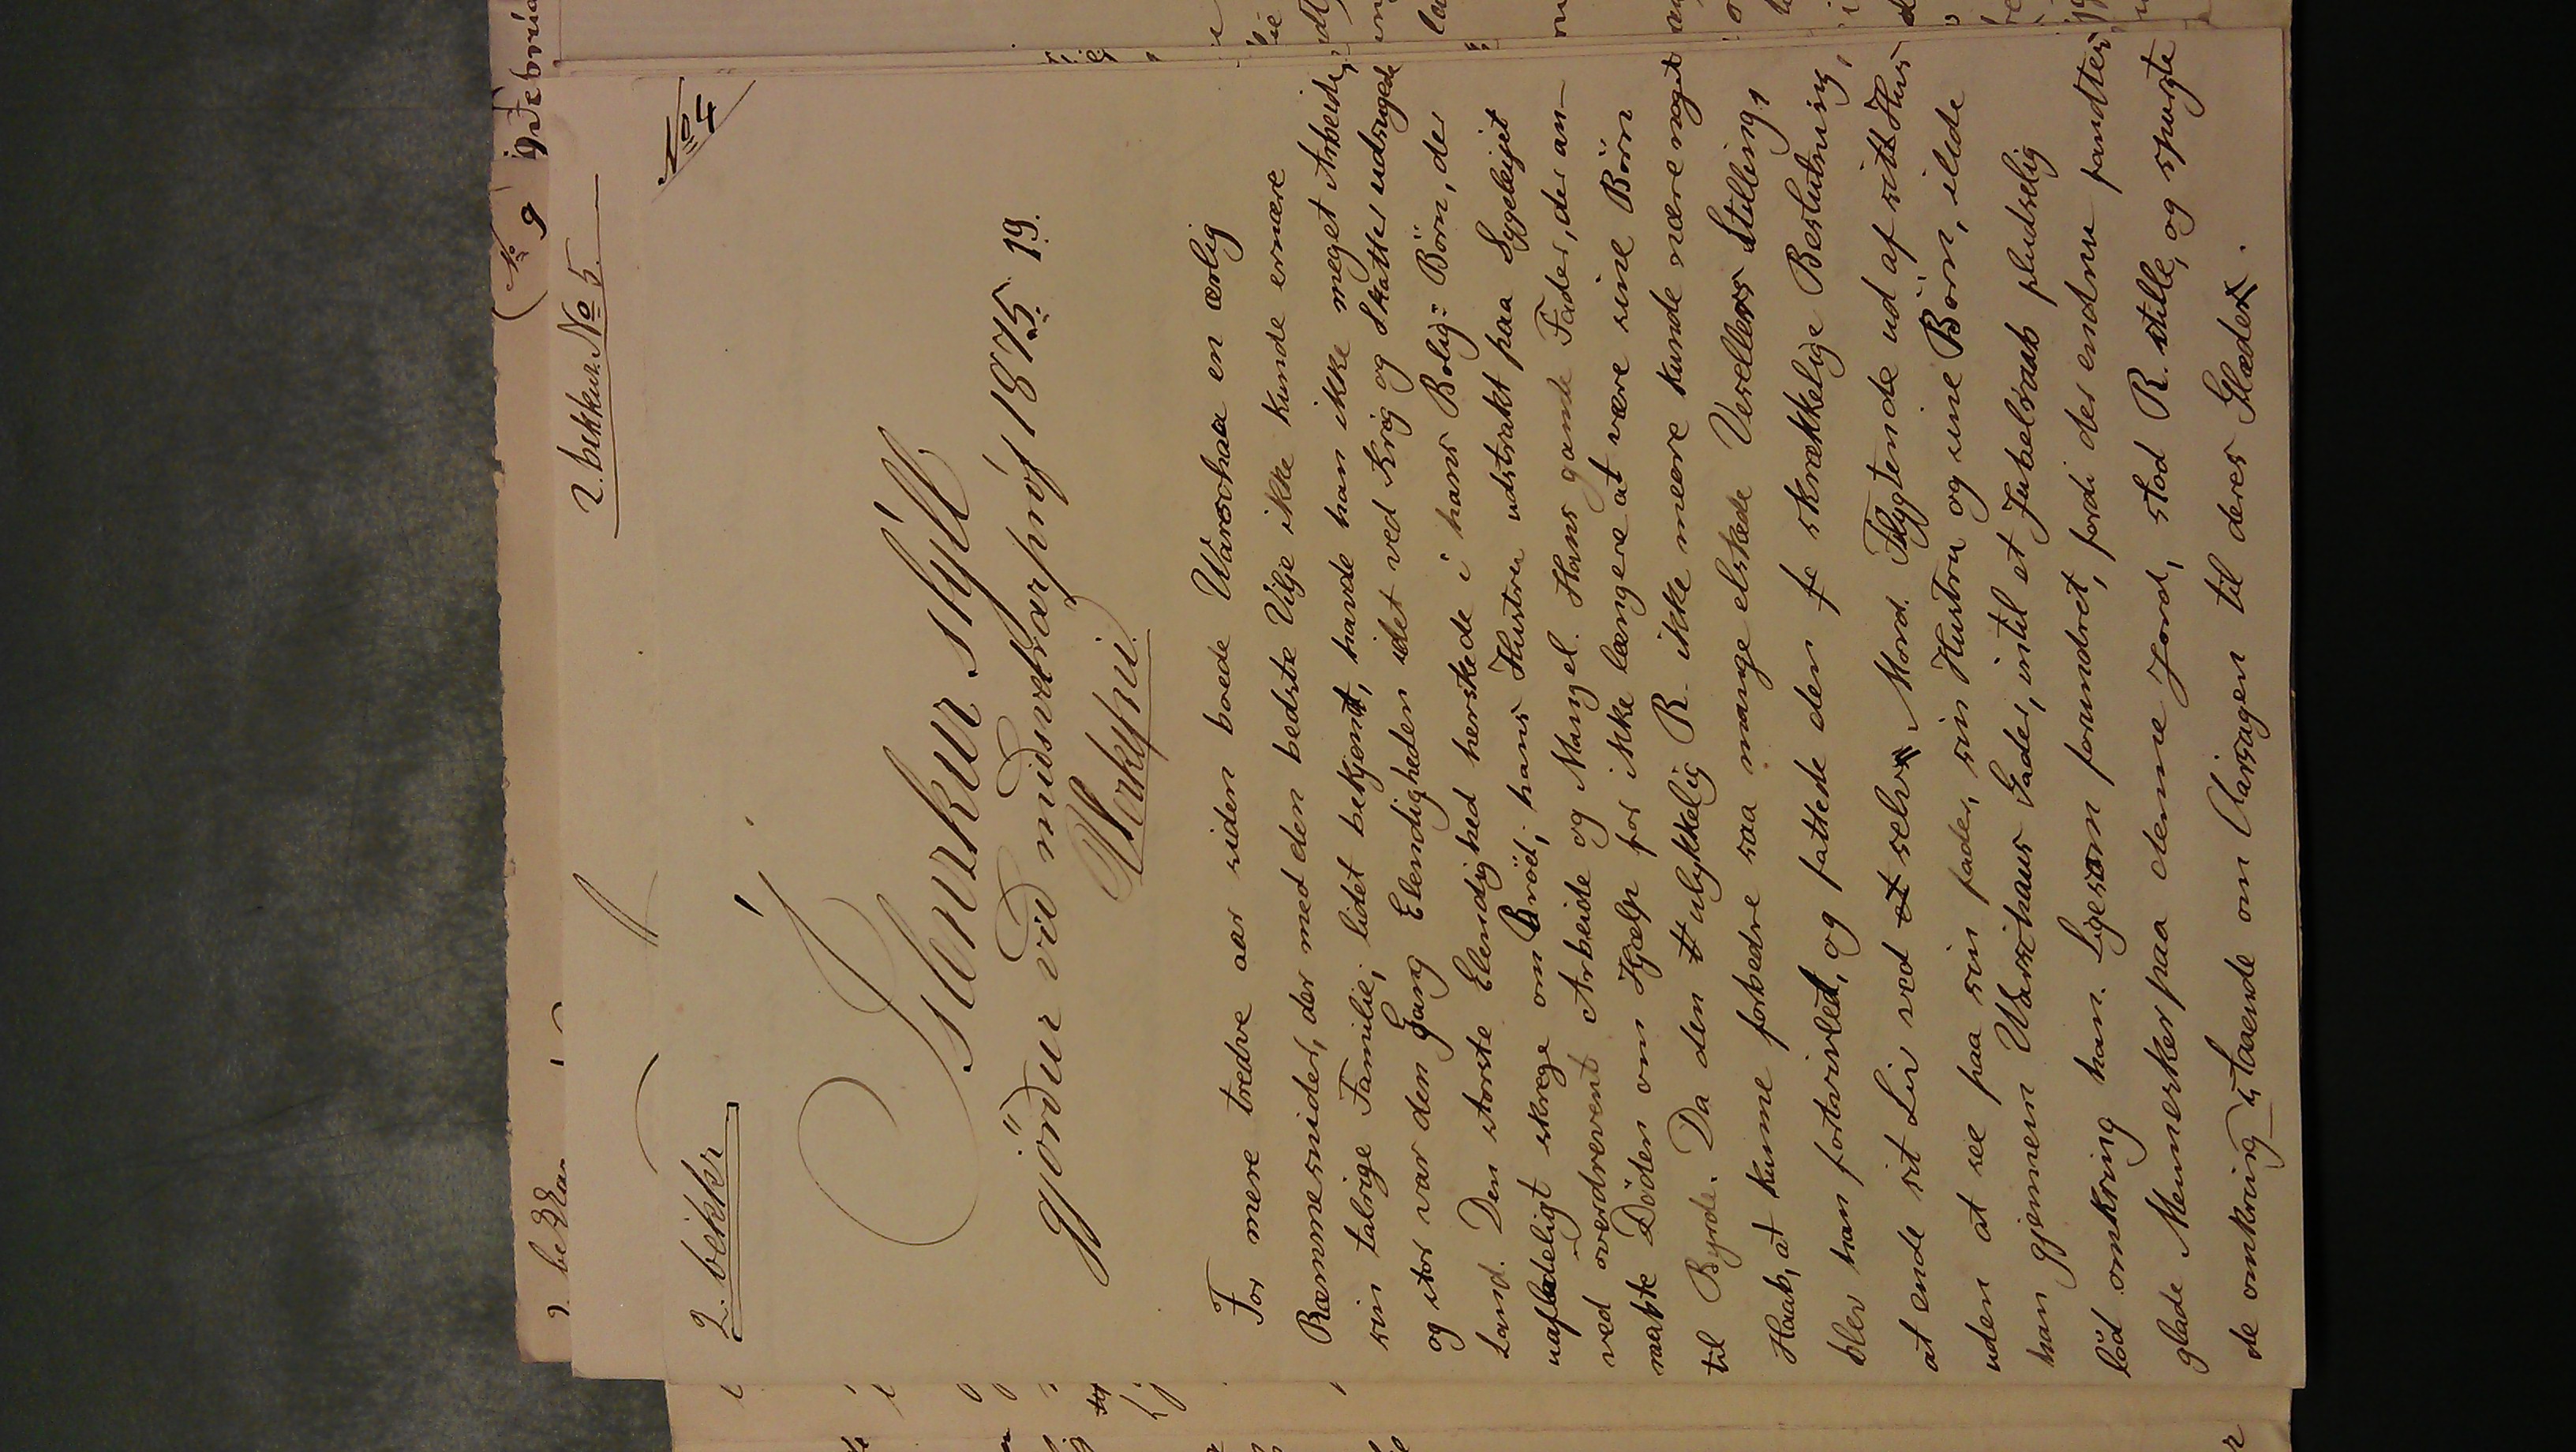 2. bekkur. No 5.
2. bekkr
No 4
Íslenzkur stýll
gjörður við miðsvetrarpróf 1875 19.
For mere tredve aar siden boede Warschaa en ærlig
Remmesnider, der med den bedste Vilje ikke kunde ernære
sin talrige Familie; lidet bekjent, havde han ikke meget Arbeide,
og stor var den Gang Elendigheden idet ved Krig og Skatter udsugede
Land. Den storste Elendighed herskede i hans Bolig: Börn, der
uafladeligt skrege om Bröd; hans Hustru udstrakt paa Sygeleiet
ved overdrevent Arbeide og Mangel. Hans gamle Fader, der an-
raabte Döden om Hjælp for ikke længere at være sine Börn
til Byrde. Da den ulykkelig R. ikke meere kunde nære noget
Haab, at kunne forbedre saa mange elskede Veselleres Stilling,
blev han fortvivlet, og fattede den skrækkelige Beslutning,
at ende sit Liv ved et selv Mord. Flygtende ud af sitt Hus
uden at see paa sin fader, sin Hustru og sine Börn, ilede
han gjennem Warschaus Gader, intil et Jubelraab pludselig
löd omkring ham. Ligesom forundret, fordi der endnu fandtes
glade Mennesker paa denne Jord, stod R. stille, og spurgte
de omkring staaende om Aarsagen til deres Glæde.